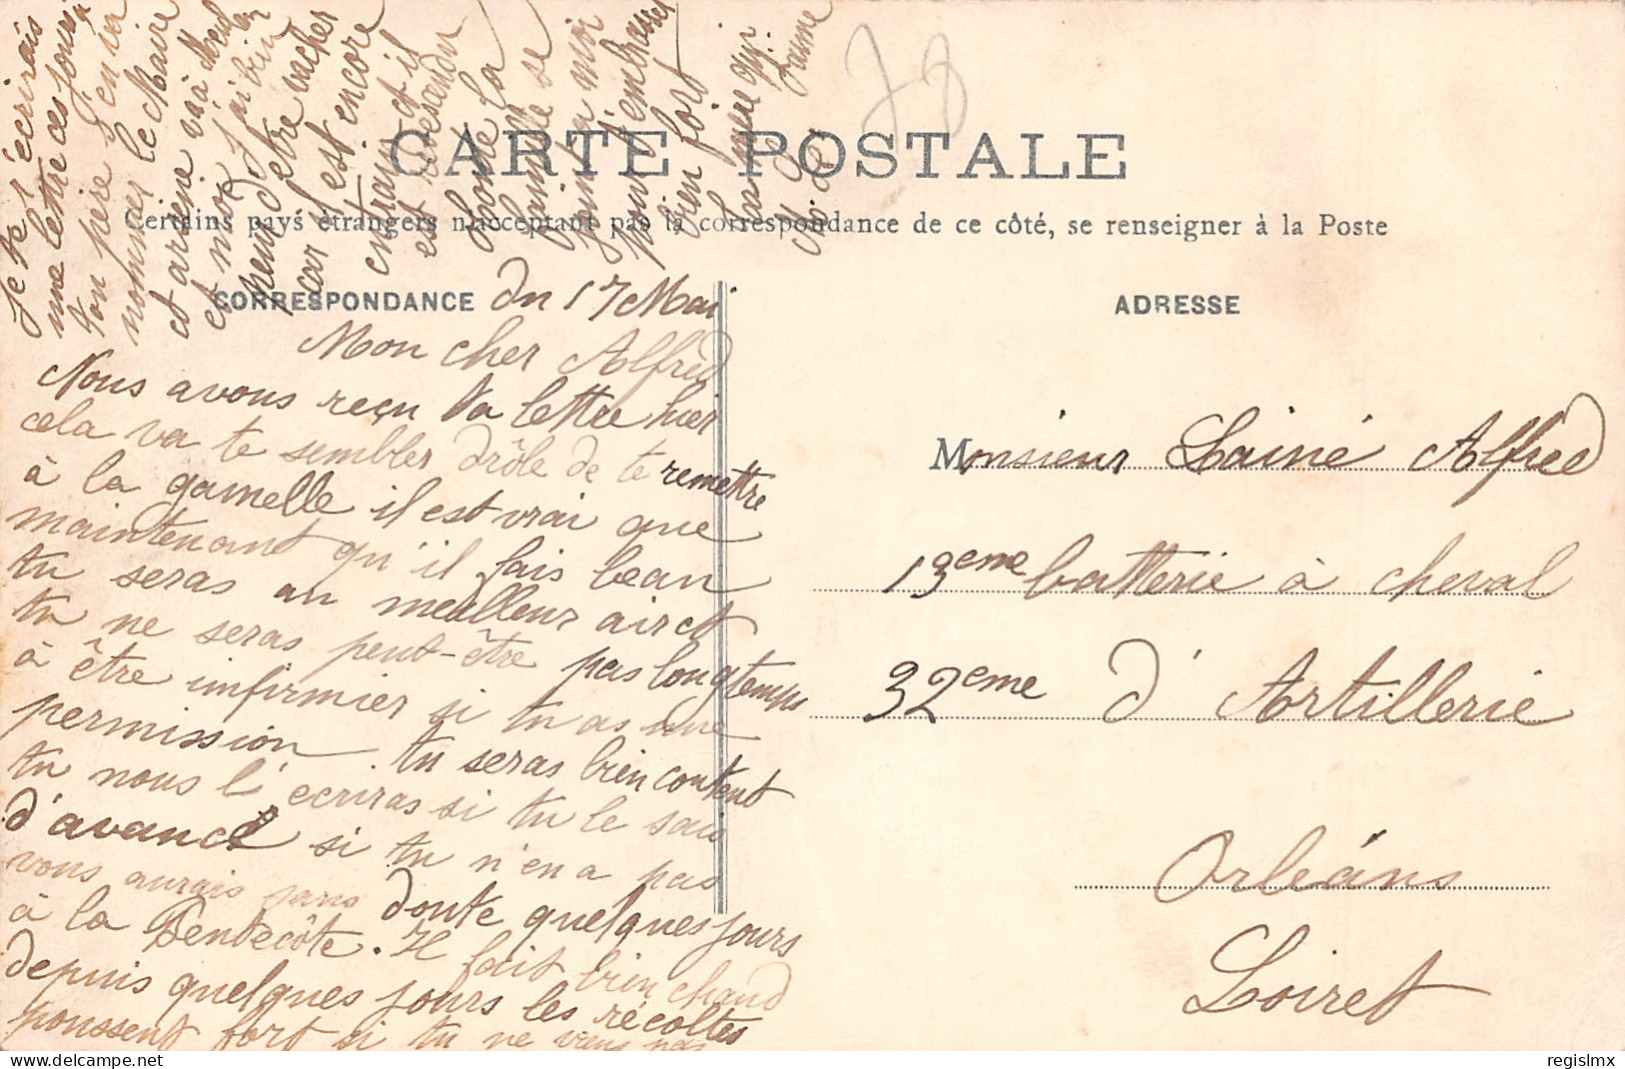 CARTE POSTALE
Certains pays étrangers n'acceptant pas la correspondance de ce côté, se renseigner à la Poste
CORRESPONDANCE
ADRESSE
du 17 Mai
Mon cher Alfred
Nous avons reçu ta lettre hier
cela va te sembler drôle de te remettre
à la gamelle il est vrai que
maintenant qu'il fais beau
tu seras au meilleur air et
tu ne seras peut-être pas longtemps
à être infirmier si tu as une
permission. tu seras bien content
tu nous l'écriras si tu le sais
d'avance si tu n'en a pas
vous aurais sans doute quelques jours
à la Pentecôte. Il fait bien chaud
depuis quelques jours les récoltes
poussent fort si tu ne viens pas
je te l'écrirais
une lettre ces jours
ton père s'en va
nommer le Maire
et arsène va à
et moi j'ai bien
peur d'être vacher
car l est encore
entrain et il
est redescendu
Bonne la
famille se
joint a moi
pour t'embrasser
bien fort
ta mère qui
Monsieur Lainé Alfred
13eme batterie à cheval
32eme d'Artillerie
Orléans
Loiret
regislmx